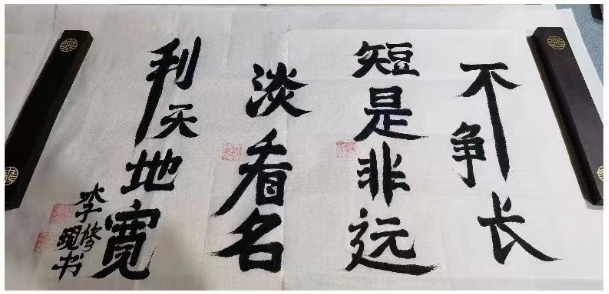 不争长
短是非远
淡看名
利天地宽
李修
书